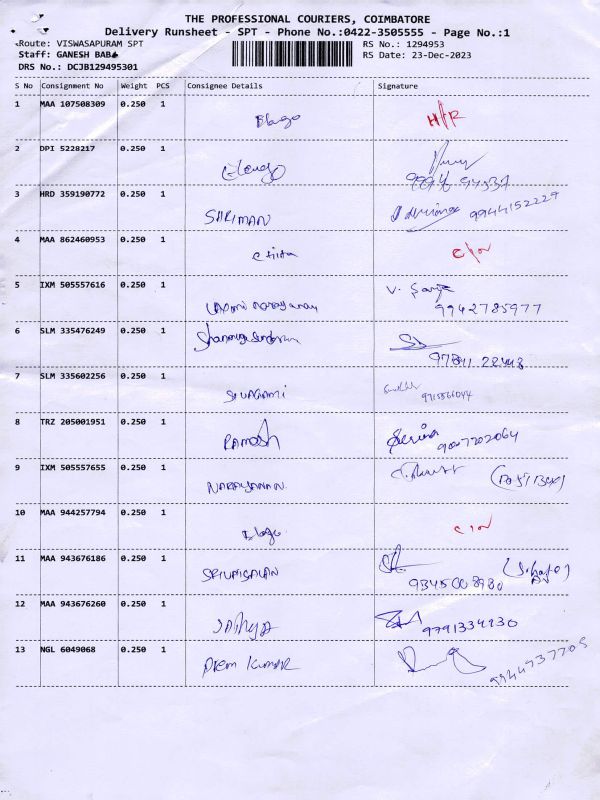 THE PROFESSIONAL COURIERS, COIMBATORE
Delivery Runsheet - SPT - Phone No.:0422-3505555 - Page No.:1
Route: VISWASAPURAM SPT
RS No.: 1294953
Staff: GANESH BABA
RS Date: 23-Dec-2023
DRS No.: DCJB129495301
S No Consignment No Weight PCS Consignee Details Signature
1 MAA 107508309 0.250 1
2 DPI 5228217 0.250 1
3 HRD 359190772 0.250 1
SHRIMAN 9944152229
4 MAA 862460953 0.250 1
5 IXM 505557616 0.250 1
9942785977
6 SLM 335476249 0.250 1
7 SLM 335602256 0.250 1
SIVAGAMI
8 TRZ 205001951 0.250 1
RAMESH
9 IXM 505557655 0.250 1
NARAYANAN
10 MAA 944257794 0.250 1
11 MAA 943676186 0.250 1
12 MAA 943676260 0.250 1
SAthya 9791334930
13 NGL 6049068 0.250 1
PREM KUMAR 9944737705